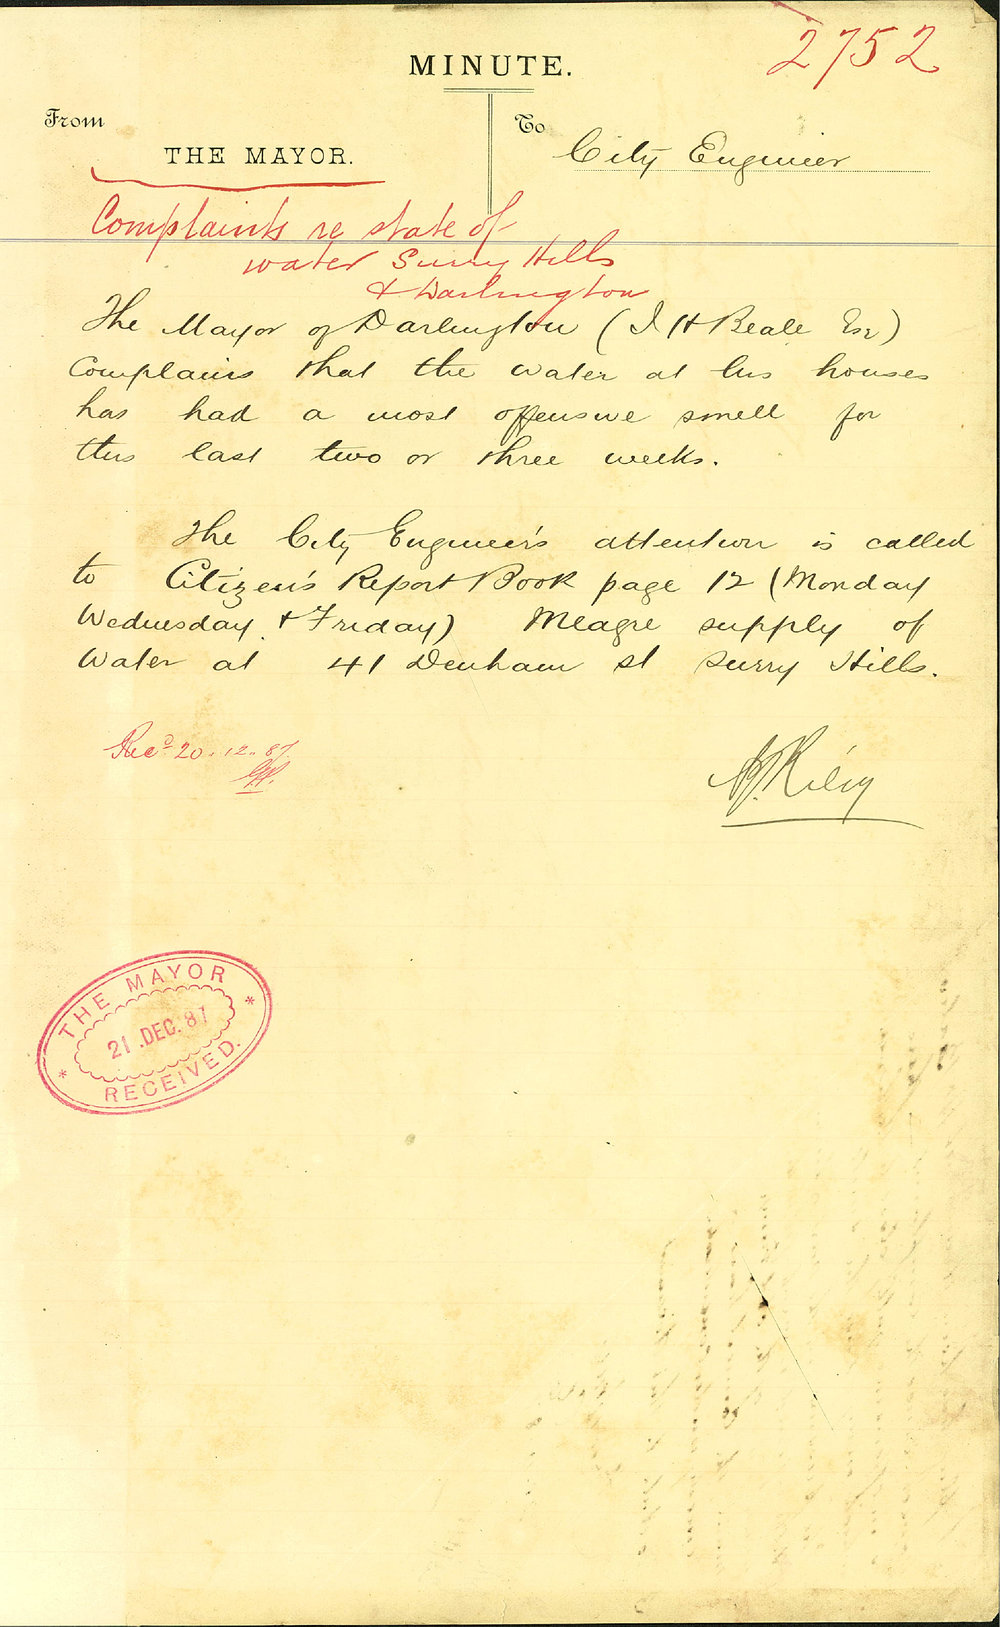 2752
MINUTE.
From
THE MAYOR.
To
City Engineer
Complaints re state of
water Surry Hills
& Darlington
The Mayor of Darlington (I H Beale Esr)
Complains that the water at his houses
has had a most offensive smell for
this last two or three weeks.
The City Engineer's attention is called
to Citizen's Report Book page 12 (Monday
Wednesday & Friday) Meagre supply of
Water at 41 Denham st Surry Hills.
Recd 20.12.87
A.J. Riley
THE MAYOR
21 .DEC. 87
RECEIVED.